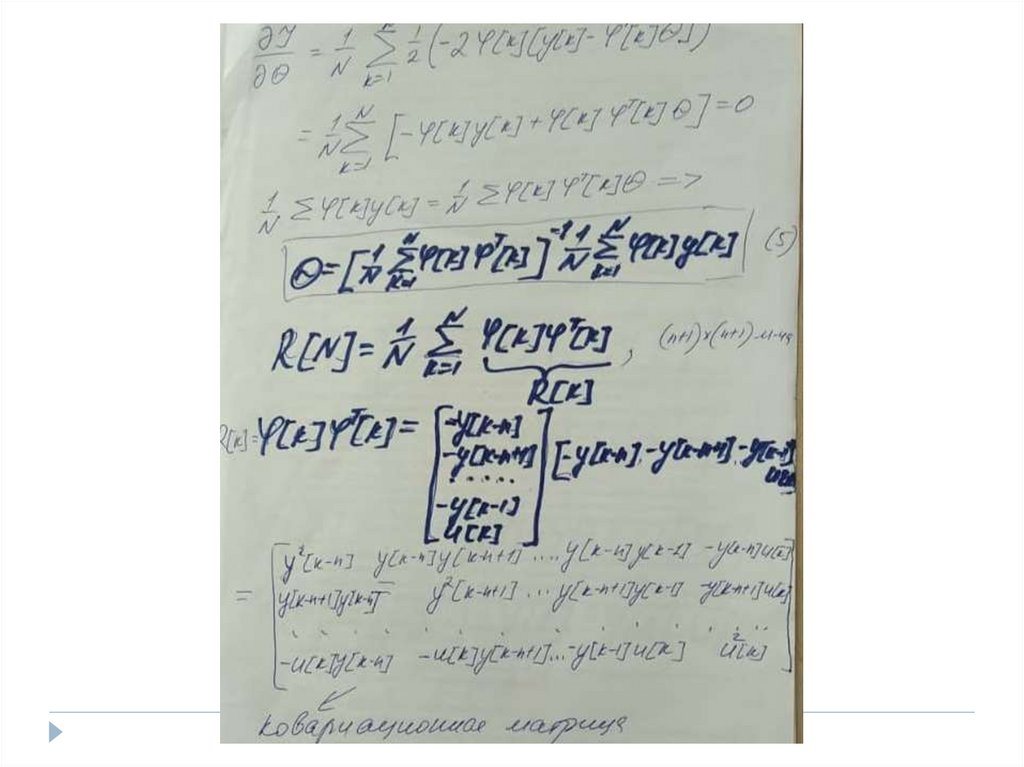 ∂J/∂Θ = 1/N Σ k=1 N 1/2 (-2φ[k][y[k]-φᵀ[k]Θ])
= 1/N Σ k=1 N [-φ[k]y[k]+φ[k]φᵀ[k]Θ]=0
1/N Σφ[k]y[k] = 1/N Σφ[k]φᵀ[k]Θ =>
Θ=[1/N Σ k=1 N φ[k]φᵀ[k]]⁻¹ 1/N Σ k=1 N φ[k]y[k] (5)
R[N]= 1/N Σ k=1 N φ[k]φᵀ[k], (n+1)×(n+1) м-ца
R[k]
R[k]=φ[k]φᵀ[k]= [-y[k-n] -y[k-n+1] ..... -y[k-1] u[k]] [-y[k-n], -y[k-n+1], -y[k-1] u[k]
= [y²[k-n] y[k-n]y[k-n+1] .... y[k-n]y[k-1] -y[k-n]u[k]
y[k-n+1]y[k-n] y²[k-n+1] ... y[k-n+1]y[k-1] -y[k-n+1]u[k]
. . . . . . . . . . . . .
-u[k]y[k-n] -u[k]y[k-n+1]...-y[k-1]u[k] u²[k]]
ковариационная матрица